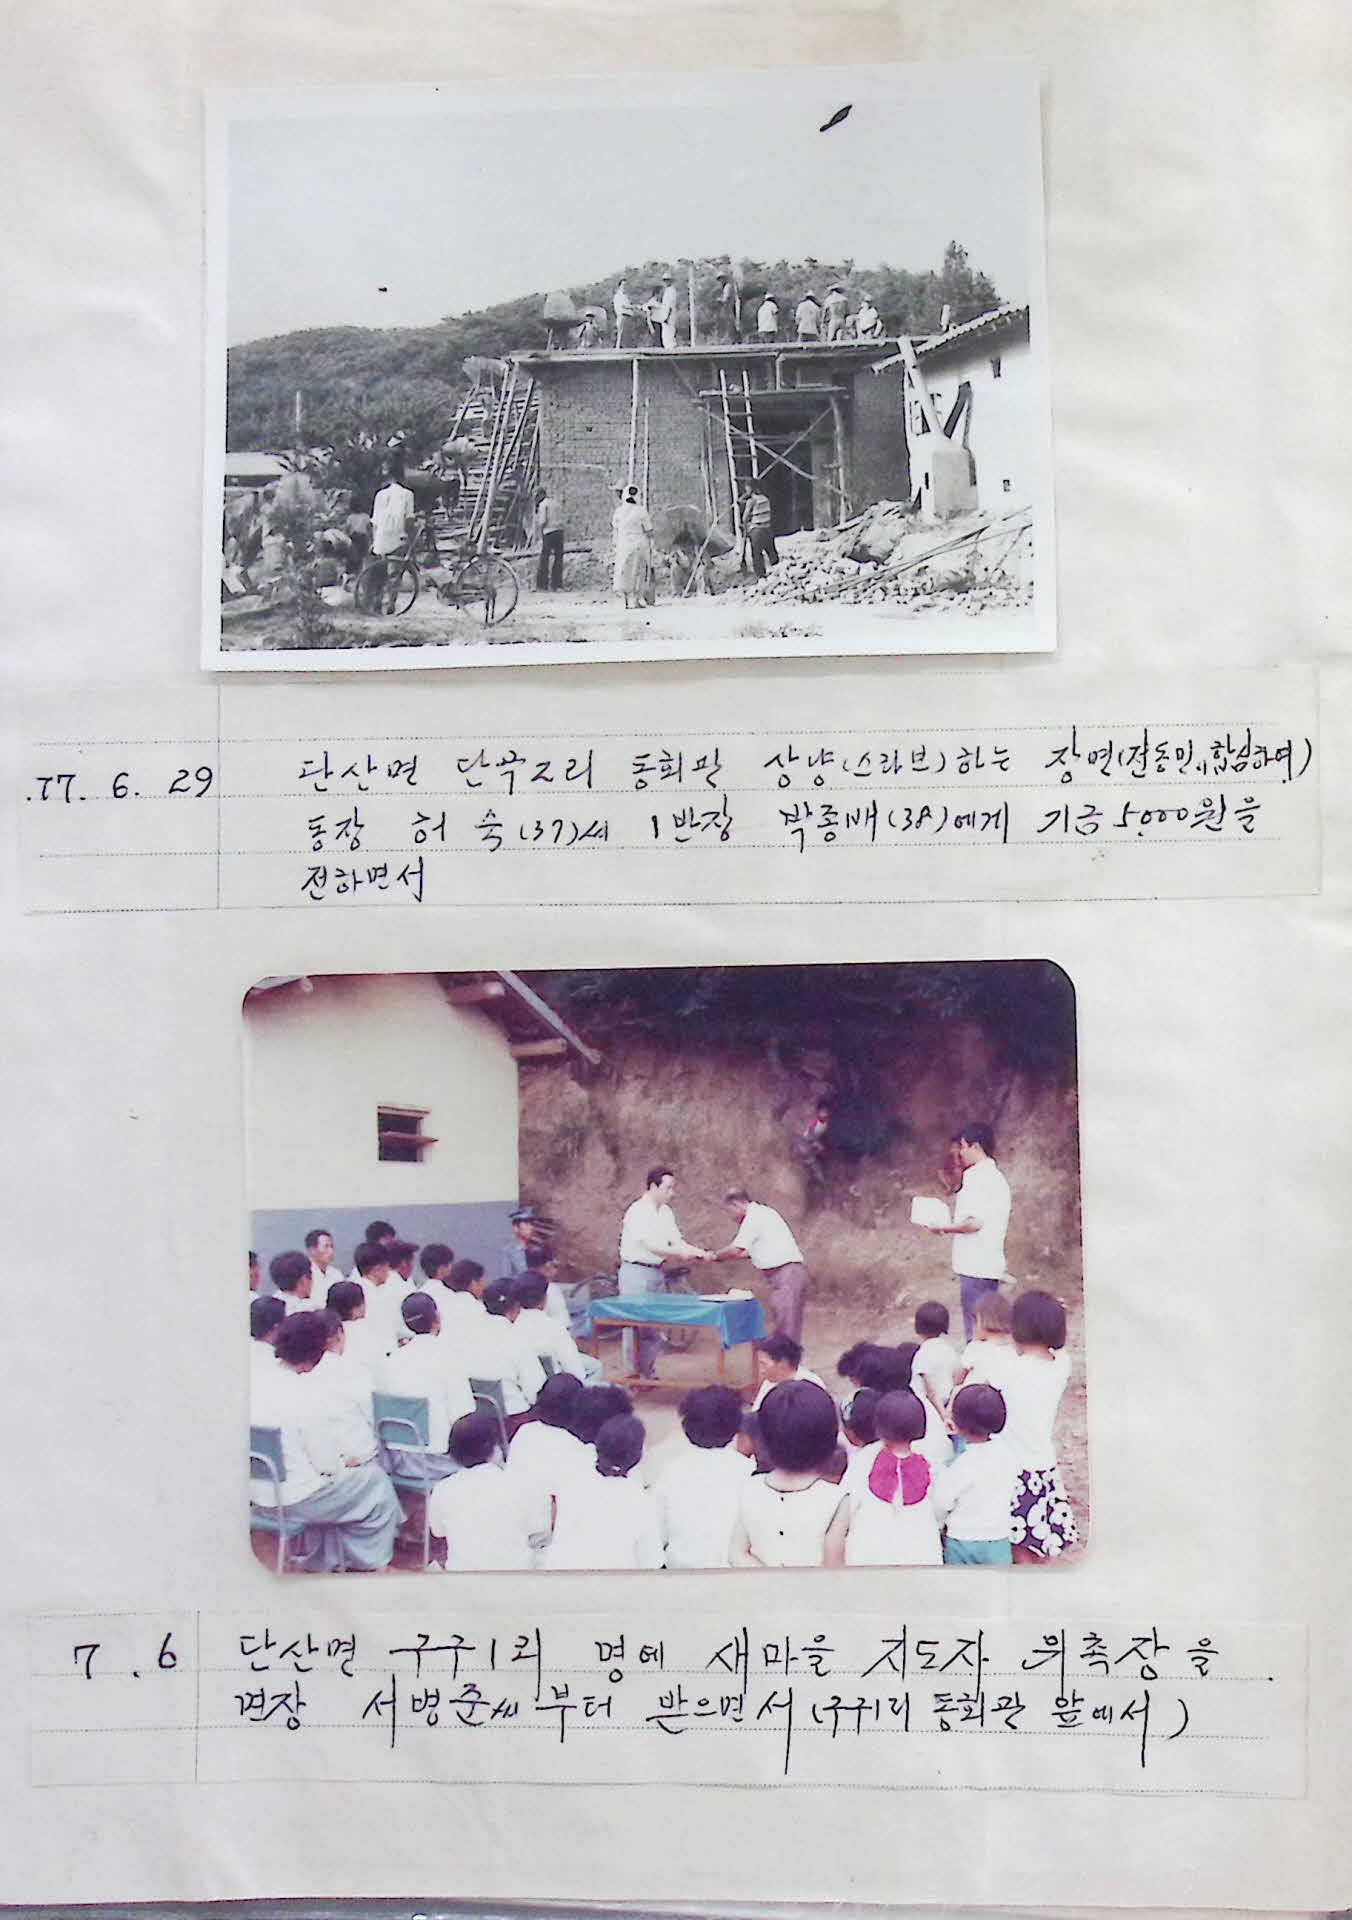 77. 6. 29 단산면 단곡2리 동회관 상량(스라브)하는 장면(전동민이 합심하여)
동장 허 숙(37)씨 1반장 박종배(38)에게 기금 5,000원을
전하면서
7. 6 단산면 구구1리 명에 새마을 지도자 위촉장을
면장 서병준씨부터 받으면서(구구1리 동회관 앞에서)